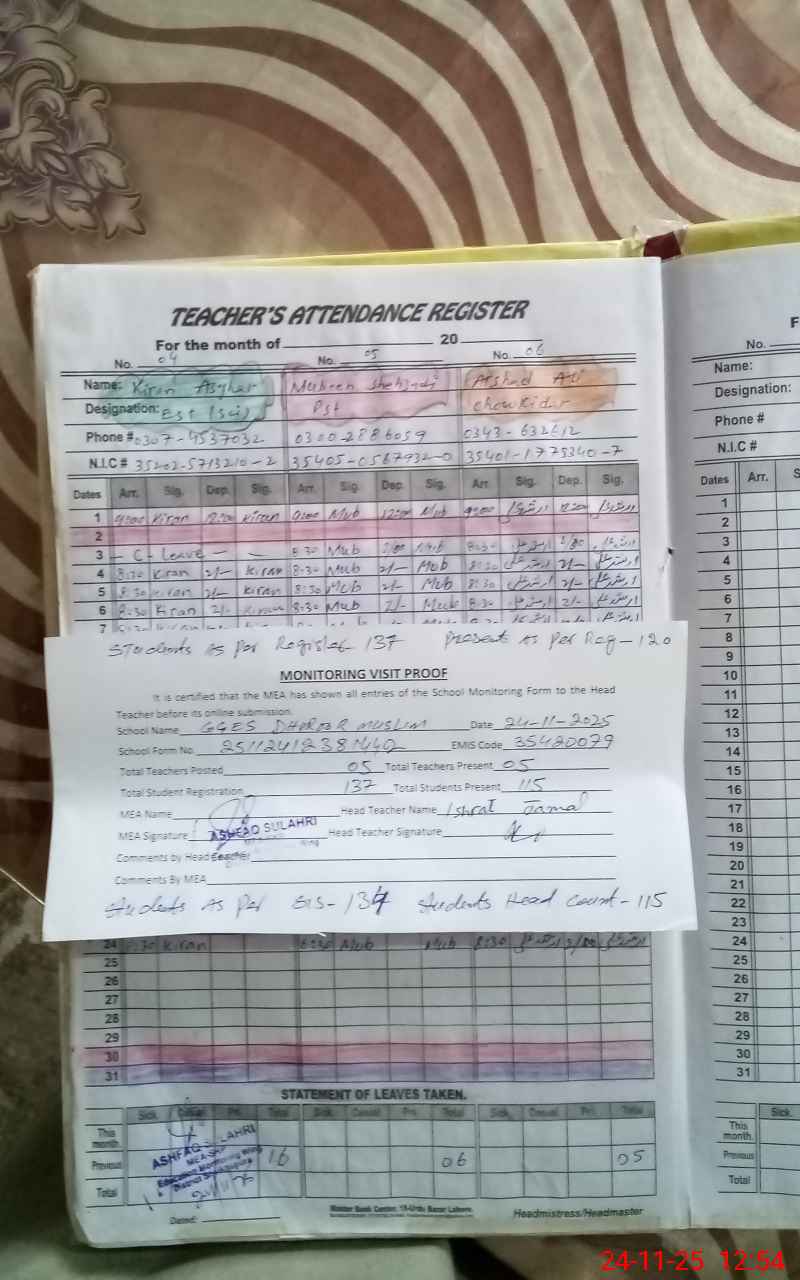 TEACHER'S ATTENDANCE REGISTER
For the month of 20
No. 04 No. 05 No. 06
Name: Kiran Asghar Mubeen Shehzadi Arshad Ali
Designation: Est (Sci) Pst Chowkidar
Phone # 0307-4537032 0300-2886059 0343-632612
N.I.C # 35202-5713210-2 35405-0567932-0 35401-1775340-7
Dates Arr. Sig. Dep. Sig. Arr. Sig. Dep. Sig. Arr. Sig. Dep. Sig.
1 9:00 Kiran 12:00 Kiran 9:00 Mub 12:00 Mub 9:00 12:00
2
3 - C - Leave - - 8:30 Mub 2/00 Mub 8:30 2/00
4 8:30 Kiran 2/- Kiran 8:30 Mub 2/- Mub 8:30 2/-
5 8:30 Kiran 2/- Kiran 8:30 Mub 2/- Mub 8:30 2/-
6 8:30 Kiran 2/- Kiran 8:30 Mub 2/- Mub 8:30 2/-
7
Students As Per Register 137 Present As Per Reg - 120
MONITORING VISIT PROOF
It is certified that the MEA has shown all entries of the School Monitoring Form to the Head
Teacher before its online submission.
School Name GGES DHAROAR MUSLIM Date 24-11-2025
School Form No. EMIS Code 35420079
Total Teachers Posted 05 Total Teachers Present 05
Total Student Registration 137 Total Students Present 115
MEA Name Head Teacher Name Ishrat Jamal
MEA Signature ASHFAQ SULAHRI Head Teacher Signature
Comments by Head Teacher
Comments By MEA
Students As Per SIS - 134 Students Head Count - 115
24 8:30 Kiran 8:30 Mub Mub 8:30 2/00
25
26
27
28
29
30
31
STATEMENT OF LEAVES TAKEN.
Sick Casual Pri. Total Sick Casual Pri. Total Sick Casual Pri. Total
This month.
Previous 16 06 05
Total
ASHFAQ SULAHRI
Education Monitoring Wing
Dated:
Master Book Center, 18-Urdu Bazar Lahore.
Headmistress/Headmaster
No.
Name:
Designation:
Phone #
N.I.C #
Dates Arr.
1
2
3
4
5
6
7
8
9
10
11
12
13
14
15
16
17
18
19
20
21
22
23
24
25
26
27
28
29
30
31
Sick.
This month.
Previous
Total
24-11-25 12:54